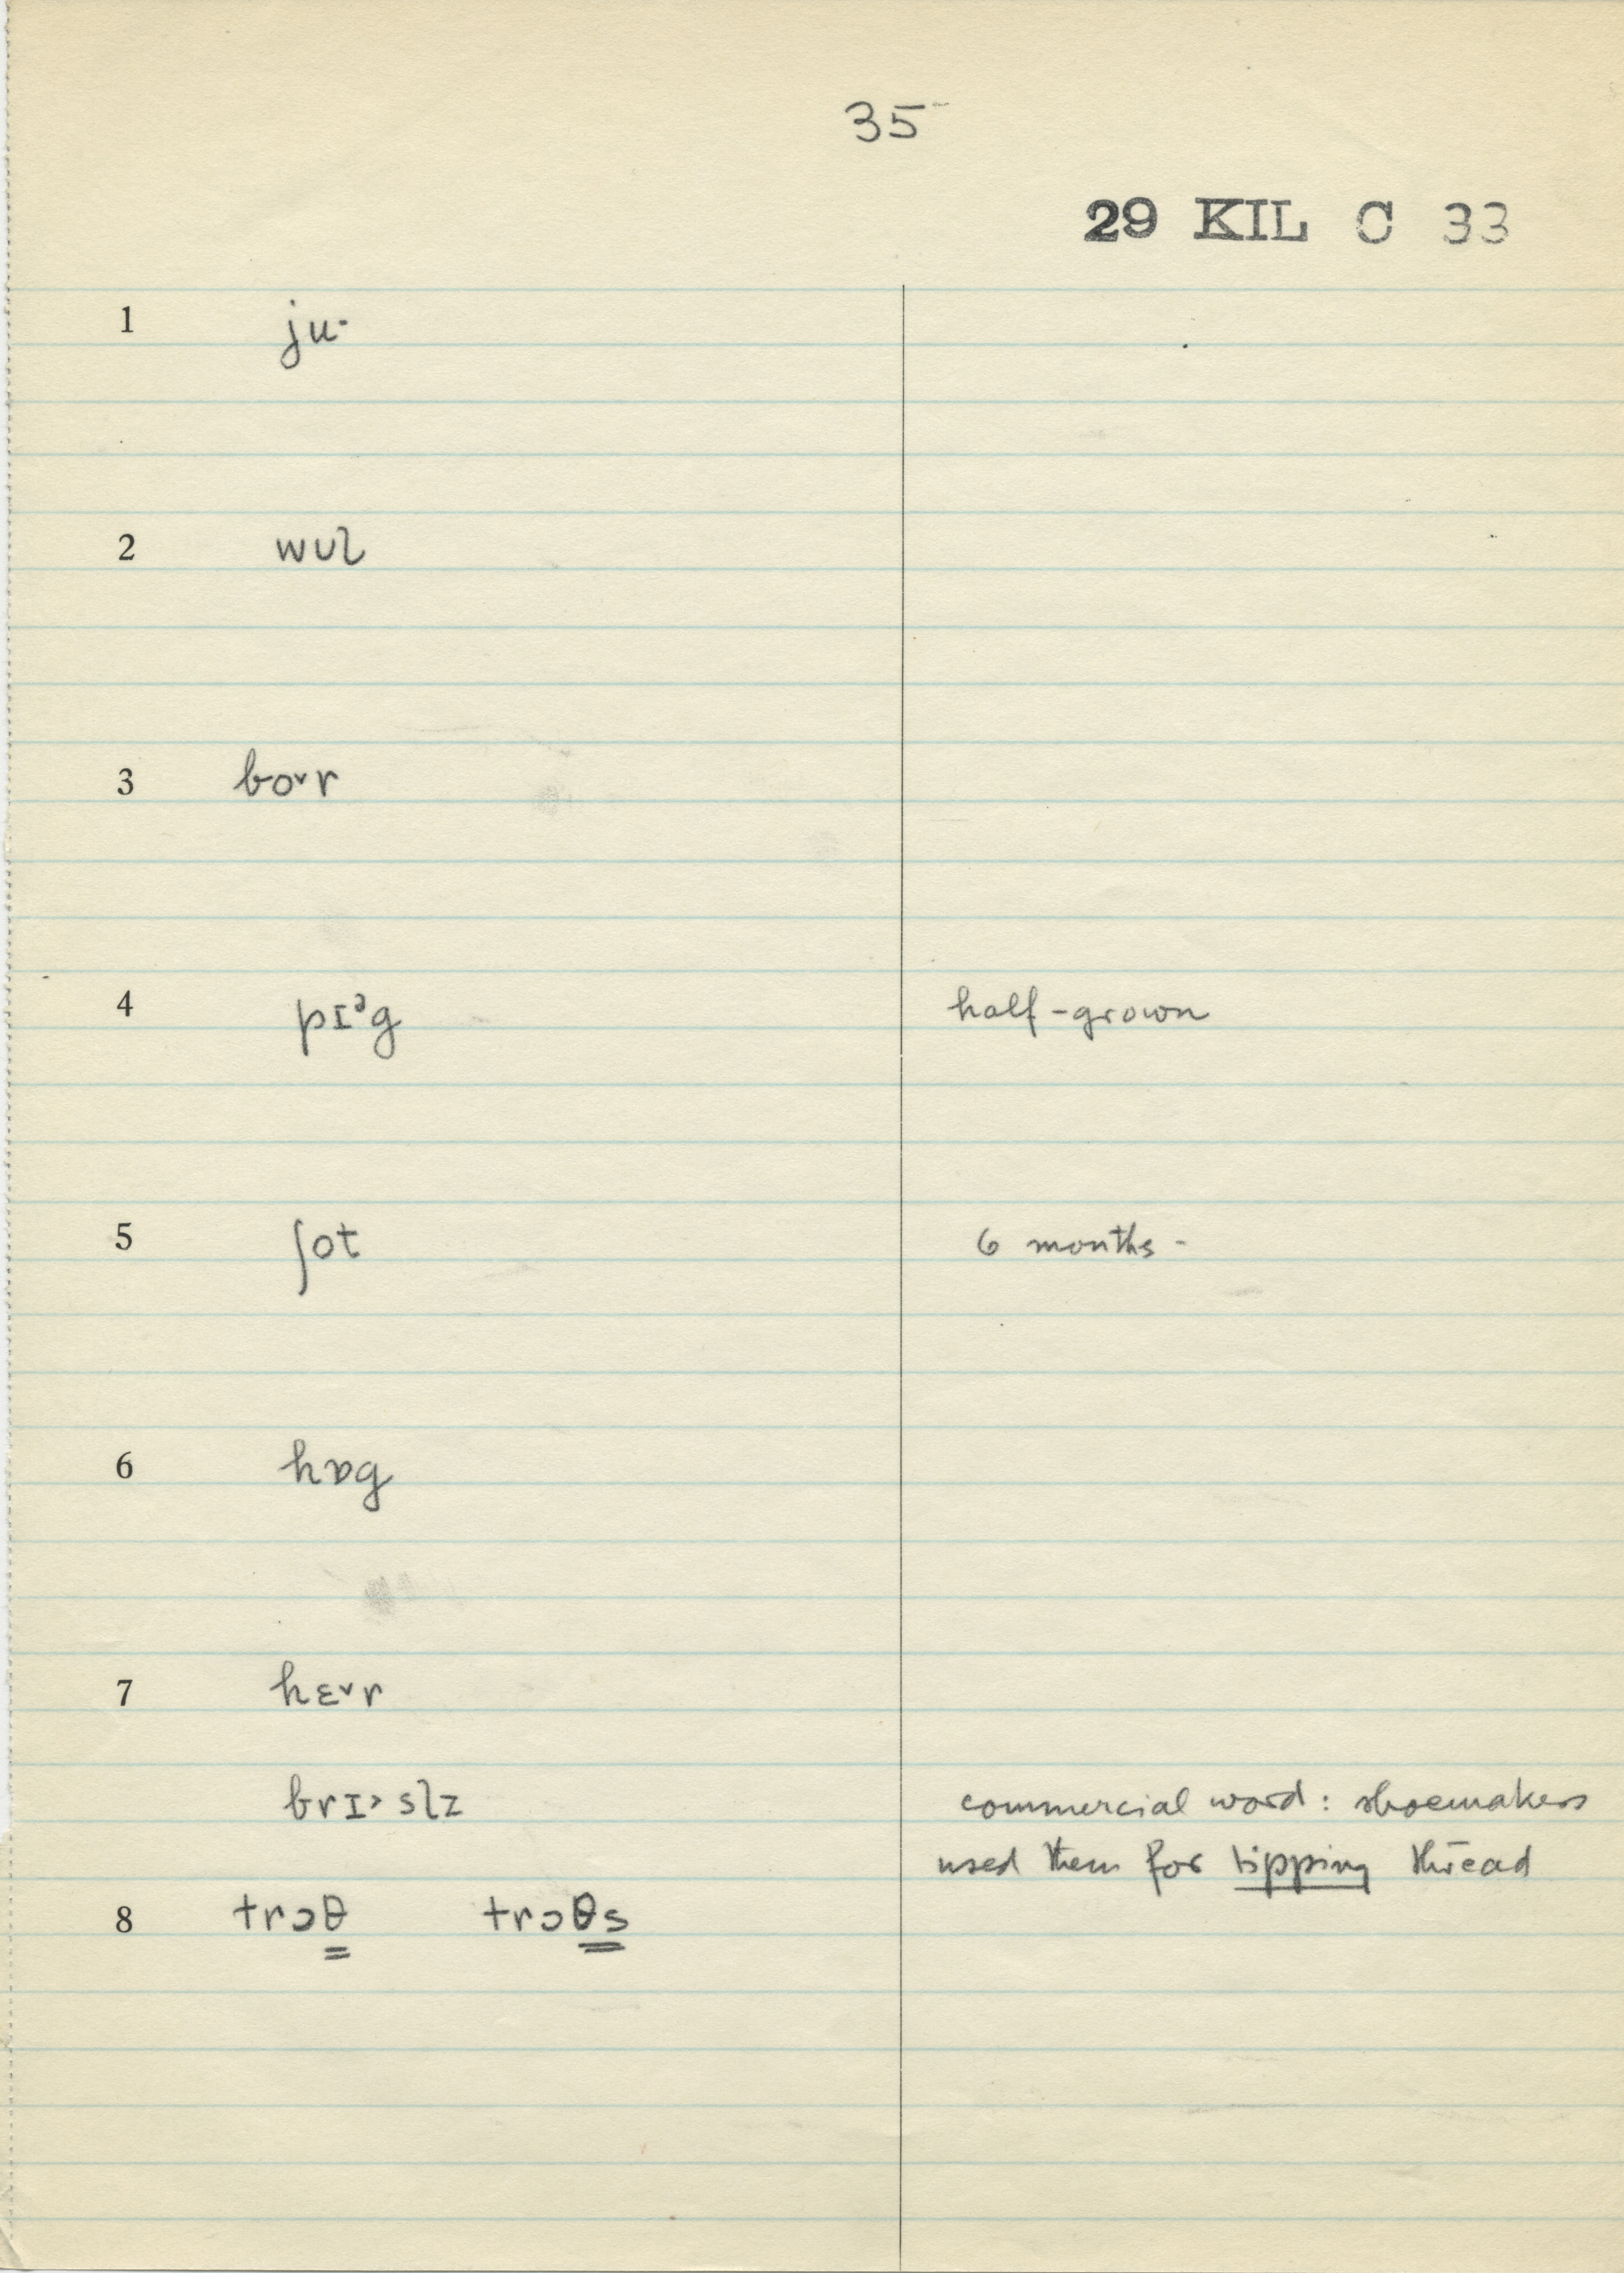 35
29 KIL C 33
1 juˑ
2 wʊl
3 bo˅r
4 pɪᵊg half-grown
5 ʃot 6 months -
6 hɒg
7 hɛ˅r
brɪ˃slz commercial word: shoemakers
used them for tipping thread
8 trɔθ trɔθs